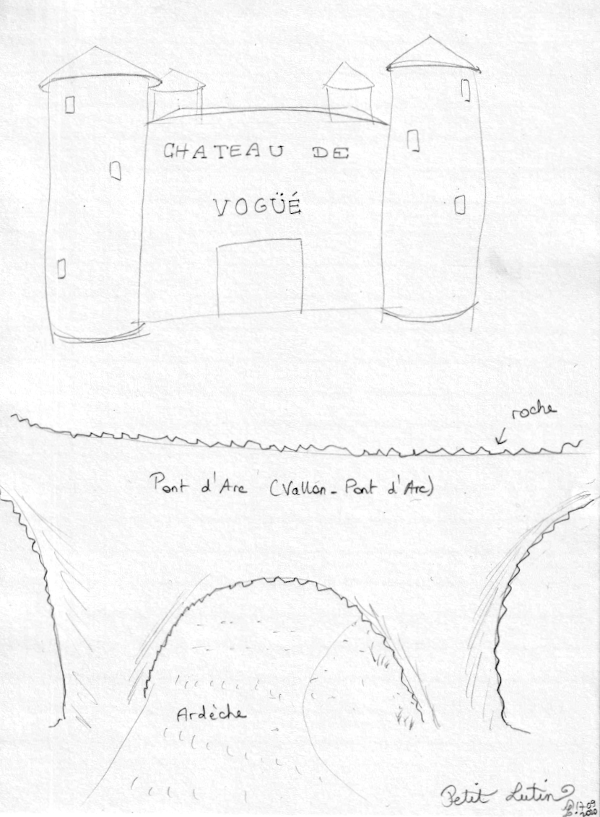 CHATEAU DE
VOGÜÉ
roche
Pont d'Arc (Vallon-Pont d'Arc)
Ardèche
Petit Lutin